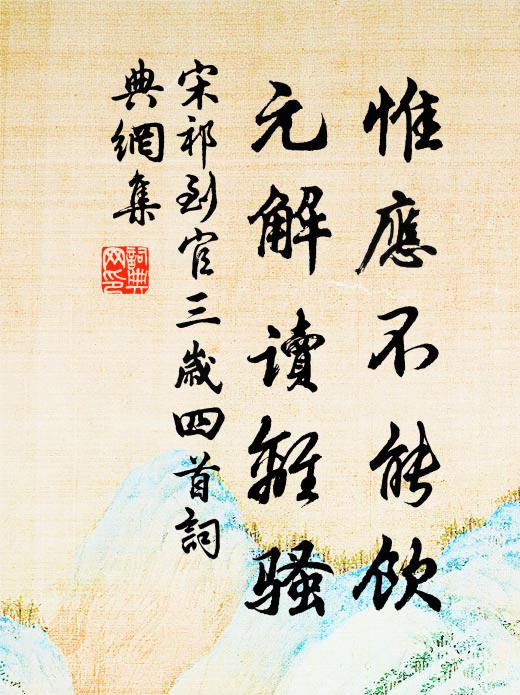 惟應不能飲
元解讀離騷
宋祁到官三歲四首詞
典網集
詞典網印